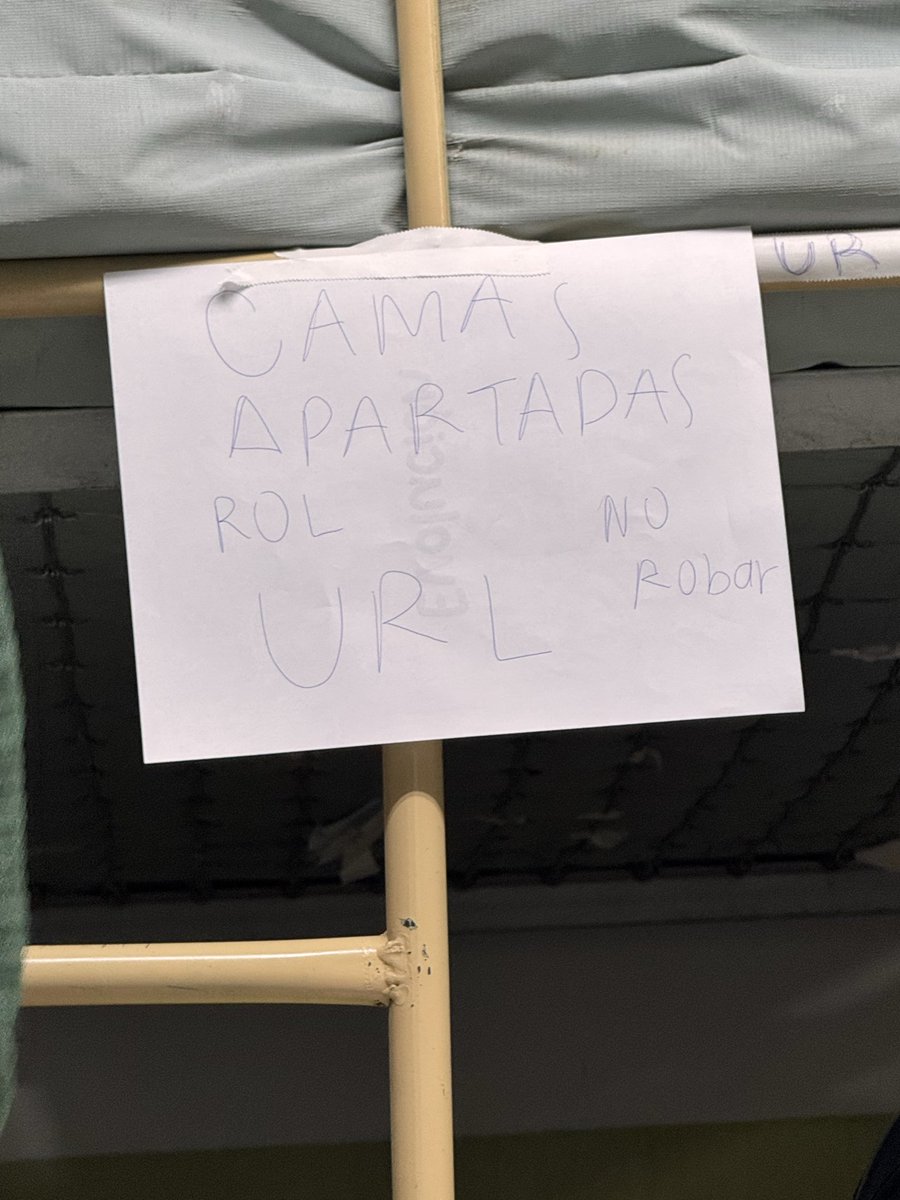 CAMAS
APARTADAS
ROL NO
Robar
URL
UR